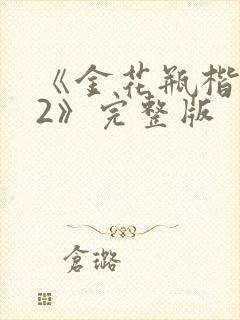 《金花瓶楷
2》完整版
倉璐